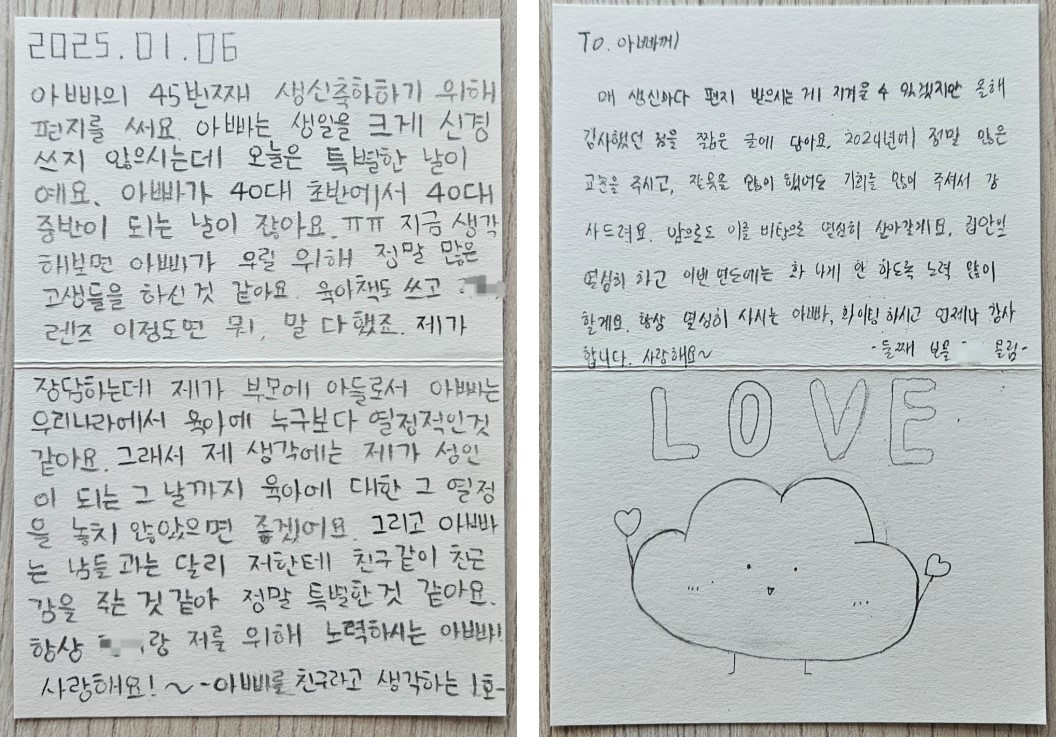 2025.01.06
아빠의 45번째 생신축하하기 위해
편지를 써요. 아빠는 생일을 크게 신경
쓰지 않으시는데 오늘은 특별한 날이
예요. 아빠가 40대 초반에서 40대
중반이 되는 날이 잖아요.ㅠㅠ 지금 생각
해보면 아빠가 우릴 위해 정말 많은
고생들을 하신것 같아요. 육아책도 쓰고
렌즈 이정도면 뭐, 말 다했죠. 제가
장담하는데 제가 부모에 아들로서 아빠는
우리나라에서 육아에 누구보다 열정적인것
같아요. 그래서 제 생각에는 제가 성인
이 되는 그 날까지 육아에 대한 그 열정
을 놓치 않았으면 좋겠어요. 그리고 아빠
는 남들 과는 달리 저한테 친구같이 친근
감을 주는 것 같아 정말 특별한것 같아요.
항상 랑 저를 위해 노력하시는 아빠!
사랑해요! ~ -아빠를 친구라고 생각하는 1호-
To. 아빠께
매 생신마다 편지 받으시는 게 지겨울 수 있겠지만 올해
감사했던 점을 짧은 글에 담아요. 2024년에 정말 많은
교훈을 주시고, 잘못을 많이 했어도 기회를 많이 주셔서 감
사드려요. 앞으로도 이를 바탕으로 열심히 살아갈게요. 집안일
열심히 하고 이번 년도에는 화 나게 안 하도록 노력 많이
할게요. 항상 열심히 사시는 아빠, 화이팅 하시고 언제나 감사
합니다. 사랑해요~ -둘째 보물 올림-
LOVE